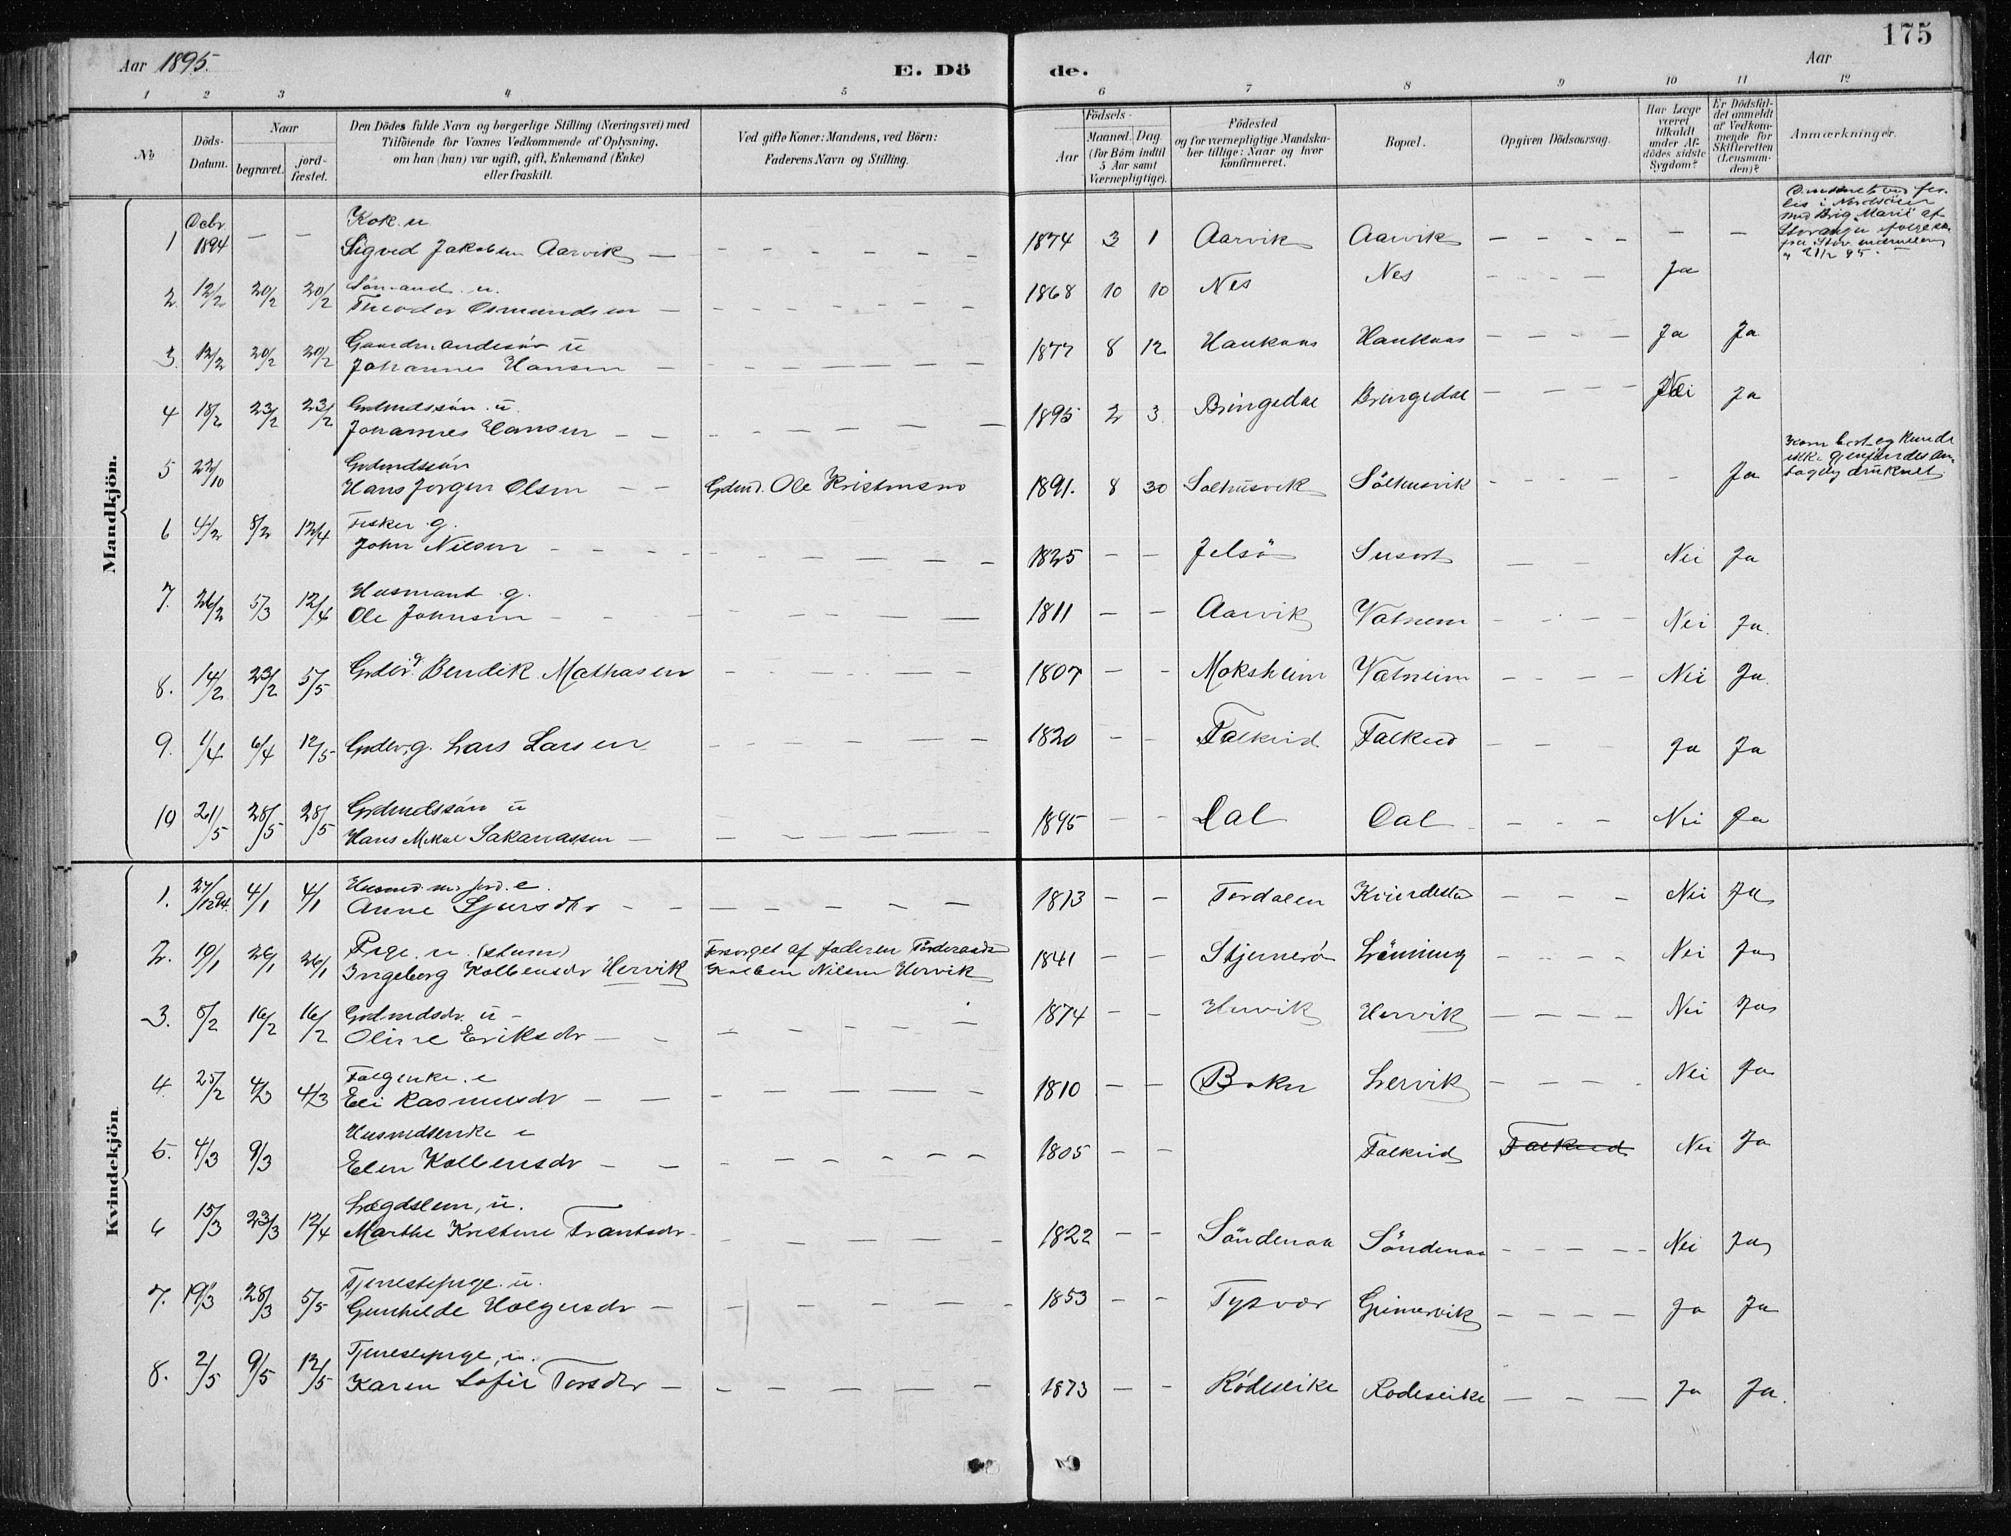 175
Aar 1895.
E. Dö
de.
Aar
1 2 3 4 5 6 7 8 9 10 11 12
No
Döds-Datum.
Naar
begravet.
jord-fæstet.
Den Dödes fulde Navn og borgerlige Stilling (Næringsvei) med
Tilföiende for Voxnes Vedkommende af Oplysning,
om han (hun) var ugift, gift, Enkemand (Enke)
eller fraskilt.
Ved gifte Koner: Mandens, ved Börn:
Faderens Navn og Stilling.
Födsels-
Aar
Maaned. Dag.
(for Börn indtil 5 Aar samt Værnepligtige).
Födested
og for værnepligtige Mandska-
ber tillige: Naar og hvor
konfirmeret.
Bopæl.
Opgiven Dödsaarsag.
Har Læge været tilkaldt under Af-dödes sidste Sygdom?
Er Dödsfal-det anmeldt af Vedkom-mende for Skifteretten (Lensman-den)?
Anmærkninger.
Mandkjön.
1 Decbr 1894 — — Kok. u
Sigved Jakobsen Aarvik 1874 3 1 Aarvik Aarvik — —
2. 12/2 20/2 20/2 Sömand. u.
Theodor Osmundsen 1868 10 10 Nes Nes Ja
3. 12/2 20/2 20/2 Gaardmandssön u
Johannes Hansen 1877 8 12 Haukaas Haukaas Ja Ja
4 18/2 23/2 23/2 Grdmdssön. u.
Johannes Hansen 1895 2 3 Bringedal Bringedal Nei Ja
5 22/10 Grdmdssön
Hans Jørgen Olsen Grdmd. Ole Kristensen 1891. 8 30 Salhusvik Sålhusvik Ja
6 4/2 8/2 12/4 Fisker g.
John Nilsen 1825 — — Jelsö Susort Nei Ja
7. 26/2 5/3 12/4 Husmand g.
Ole Johnsen 1811 — — Aarvik Vatnem Nei Ja.
8. 14/2 23/2 5/5 Bendik Mathasen 1807 — — Moksheim Vatneim Nei Ja.
9. 1/4 6/4 12/5 g. Lars Larsen 1820 — — Falkeid Falkeid Ja Ja
10 21/5 28/5 28/5 Grdmdssön u
Hans Mikal Sakariassen 1895 — — Dal Dal Nei Ja
Kvindekjön
1. 27/12 94. 4/1 4/1 e.
Anne Sjursdtr 1813 — — Tordalen Nei Ja
2. 19/1 26/1 26/1 Pige. u (stum)
Ingeborg Kolbensdr Hervik Forsørget af faderen
Kolben Nilsen Hervik 1841 — — Stjernerö Lönning Nei Ja
3. 8/2 16/2 16/2 Grdmdsdr. u
Oline Eriksdr 1874 — — Hervik Hervik Nei Ja
4. 25/2 4/3 4/3 e
Eli Rasmusdr 1810 — — Bokn Lervik Nei Ja
5. 4/3 9/3 Husmdsenke e
Elen Kolbensdr 1805 — — Falkeid Falkeid Nei Ja
6 15/3 23/3 12/4 Lægdslem, u.
Marthe Kristine Frantsdr 1822 — — Söndenaa Söndenaa Nei Ja
7. 19/3 28/3 5/5 Tjenestepige. u.
Gunhilde Holgersdr 1853 — — Tysvær Grinnervik Ja Ja
8. 2/5 9/5 12/5 Tjenestepige, u.
Karen Sofie Torsdtr 1873 — — Rödseike Rodeseike Ja Ja.